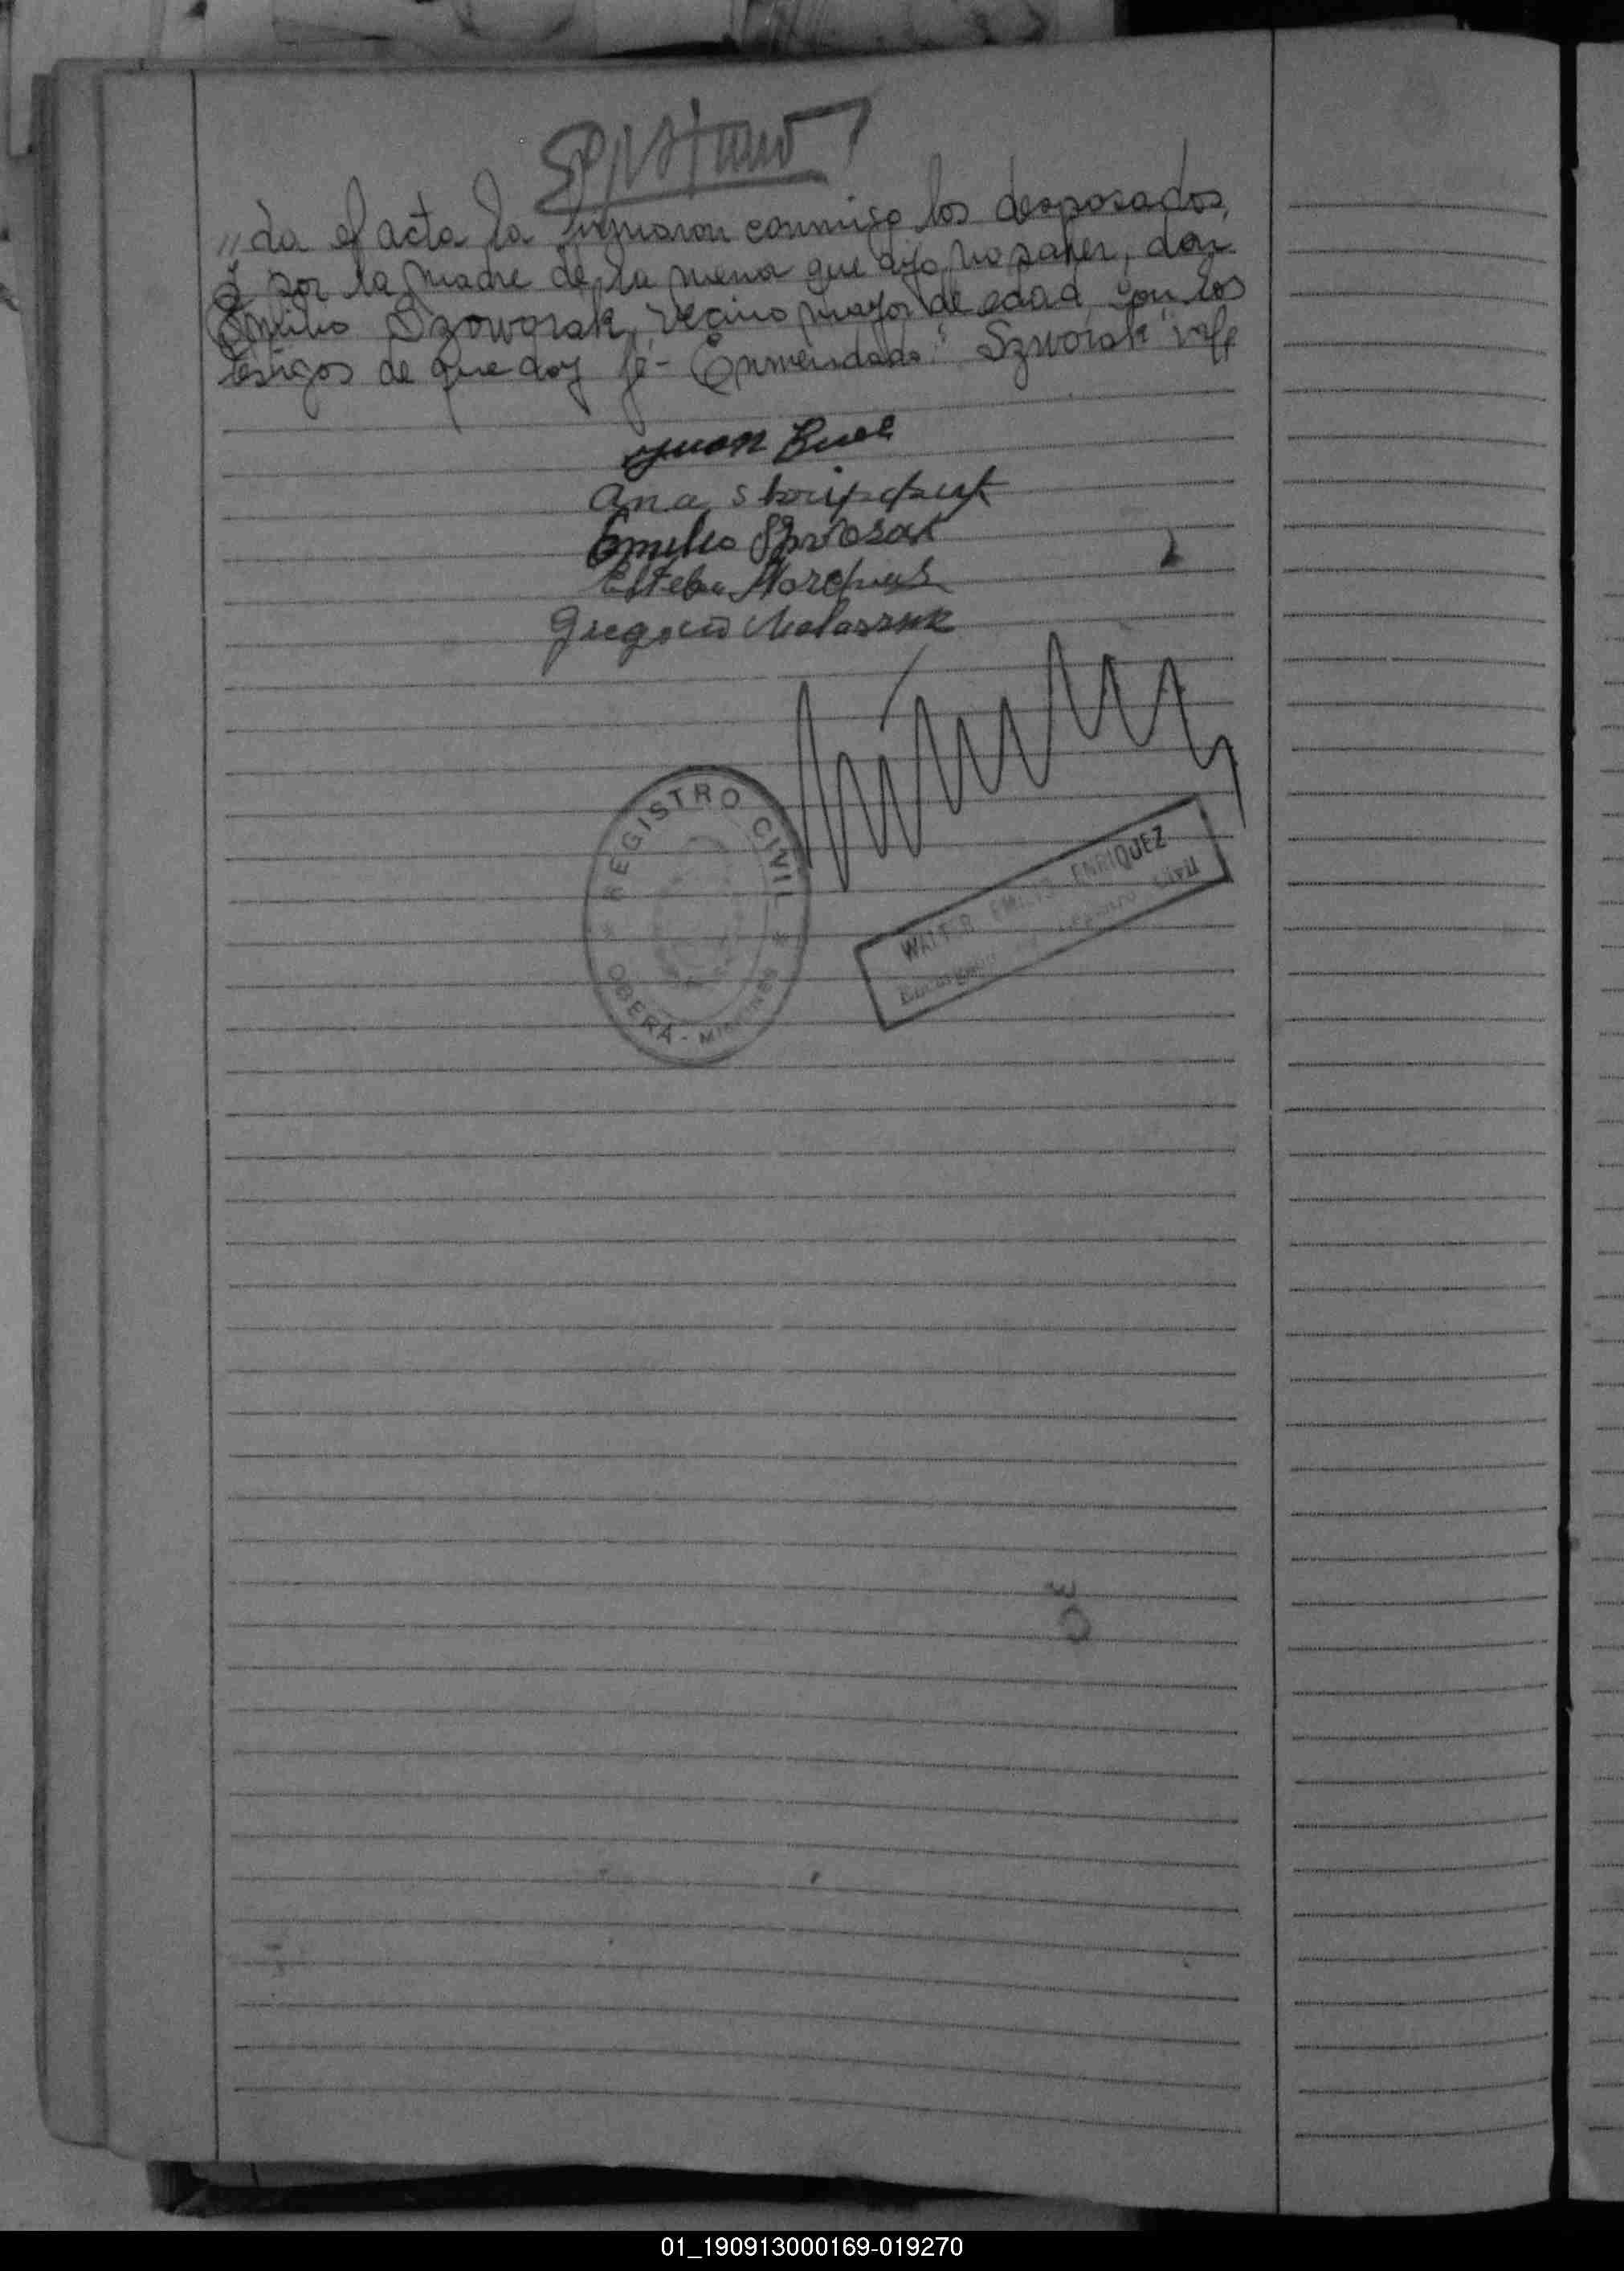 "da el acta la firmaron conmigo los desposados,
y por la madre de la menor que dijo no saber, don
Emilio Szoworak, vecino mayor de edad con los
testigos de que doy fé - Enmendado: "Szworak" vale
Juan
Ana
Emilio Szworak
Esteban
Gregorio
REGISTRO CIVIL
OBERÁ - MISIONES
WALTER EMILIO ENRIQUEZ
Encargado Registro Civil
01_190913000169-019270